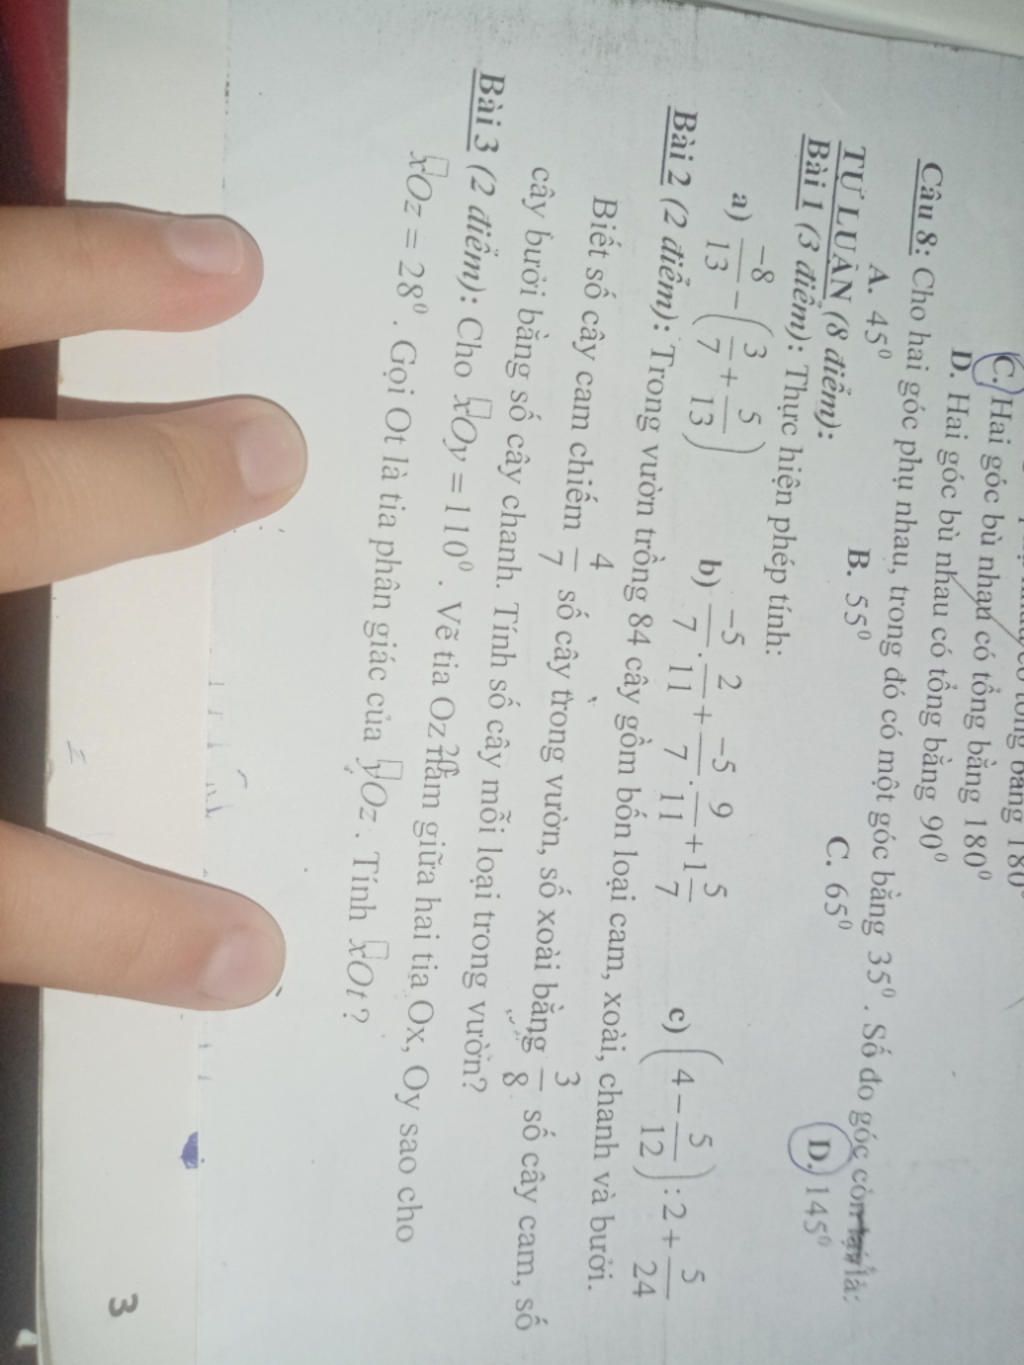 C. Hai góc bù nhau có tổng bằng 180⁰
D. Hai góc bù nhau có tổng bằng 90⁰
Câu 8: Cho hai góc phụ nhau, trong đó có một góc bằng 35⁰. Số đo góc còn lại là:
A. 45⁰ B. 55⁰ C. 65⁰ D. 145⁰
TỰ LUẬN (8 điểm):
Bài 1 (3 điểm): Thực hiện phép tính:
a) -8/13 - (3/7 + 5/13) b) -5/7 . 2/11 + -5/7 . 9/11 + 1 5/7 c) (4 - 5/12) : 2 + 5/24
Bài 2 (2 điểm): Trong vườn trồng 84 cây gồm bốn loại cam, xoài, chanh và bưởi.
Biết số cây cam chiếm 4/7 số cây trong vườn, số xoài bằng 3/8 số cây cam, số
cây bưởi bằng số cây chanh. Tính số cây mỗi loại trong vườn?
Bài 3 (2 điểm): Cho xOy = 110⁰. Vẽ tia Oz nằm giữa hai tia Ox, Oy sao cho
xOz = 28⁰. Gọi Ot là tia phân giác của yOz. Tính xOt?
3